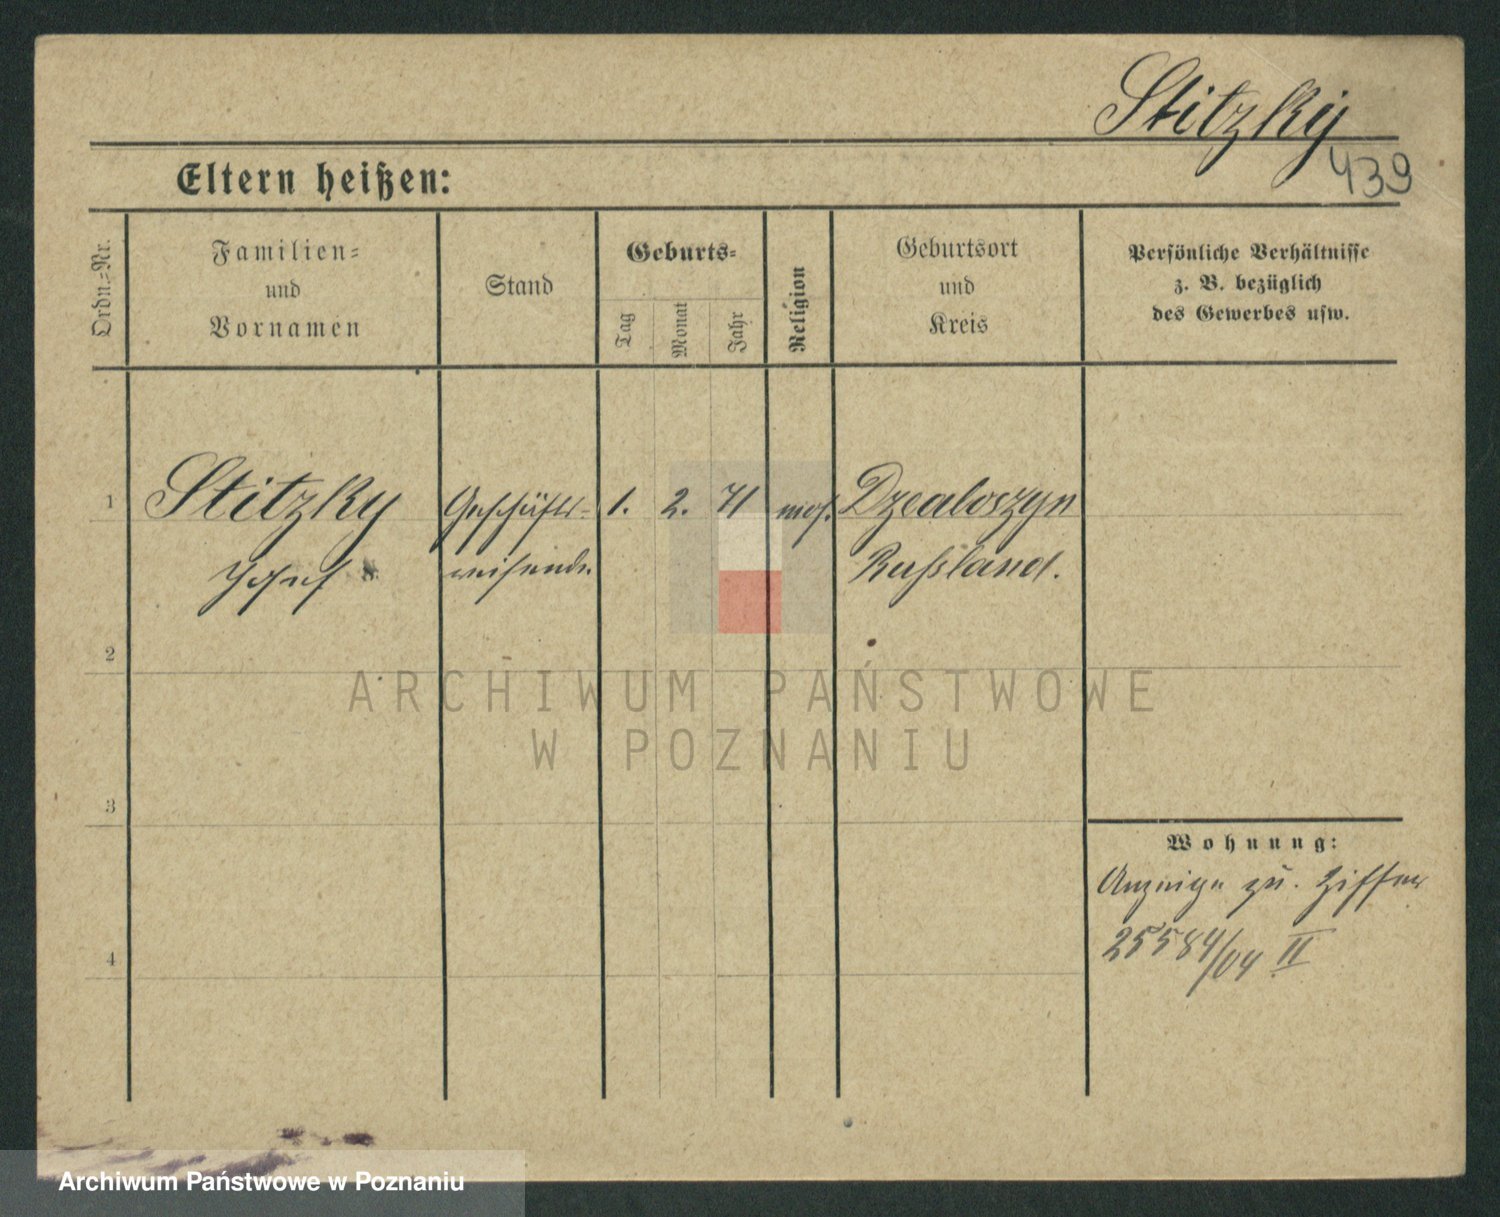 Stitzky
439
Eltern heißen:
Ordn.-Nr.
Familien-
und
Vornamen
Stand
Geburts-
Tag
Monat
Jahr
Religion
Geburtsort
und
Kreis
Persönliche Verhältnisse
z. B. bezüglich
des Gewerbes usw.
1
Stitzky
Geschäfts-
1.
2.
71
mos.
Dzealoszyn
Josef
reisender
Russland.
2
ARCHIWUM PAŃSTWOWE
W POZNANIU
3
Wohnung:
Anzeige zu. Ziffer
4
25584/04 II
Archiwum Państwowe w Poznaniu